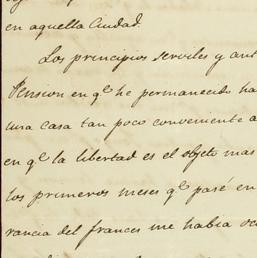 en aquella Ciudad
Los principios serviles y ant
Pension en qe he permanecido ha
una casa tan poco conveniente a
en qe la libertad es el objeto mas
los primeros meses qe pasé en
rancia del frances me habia oc